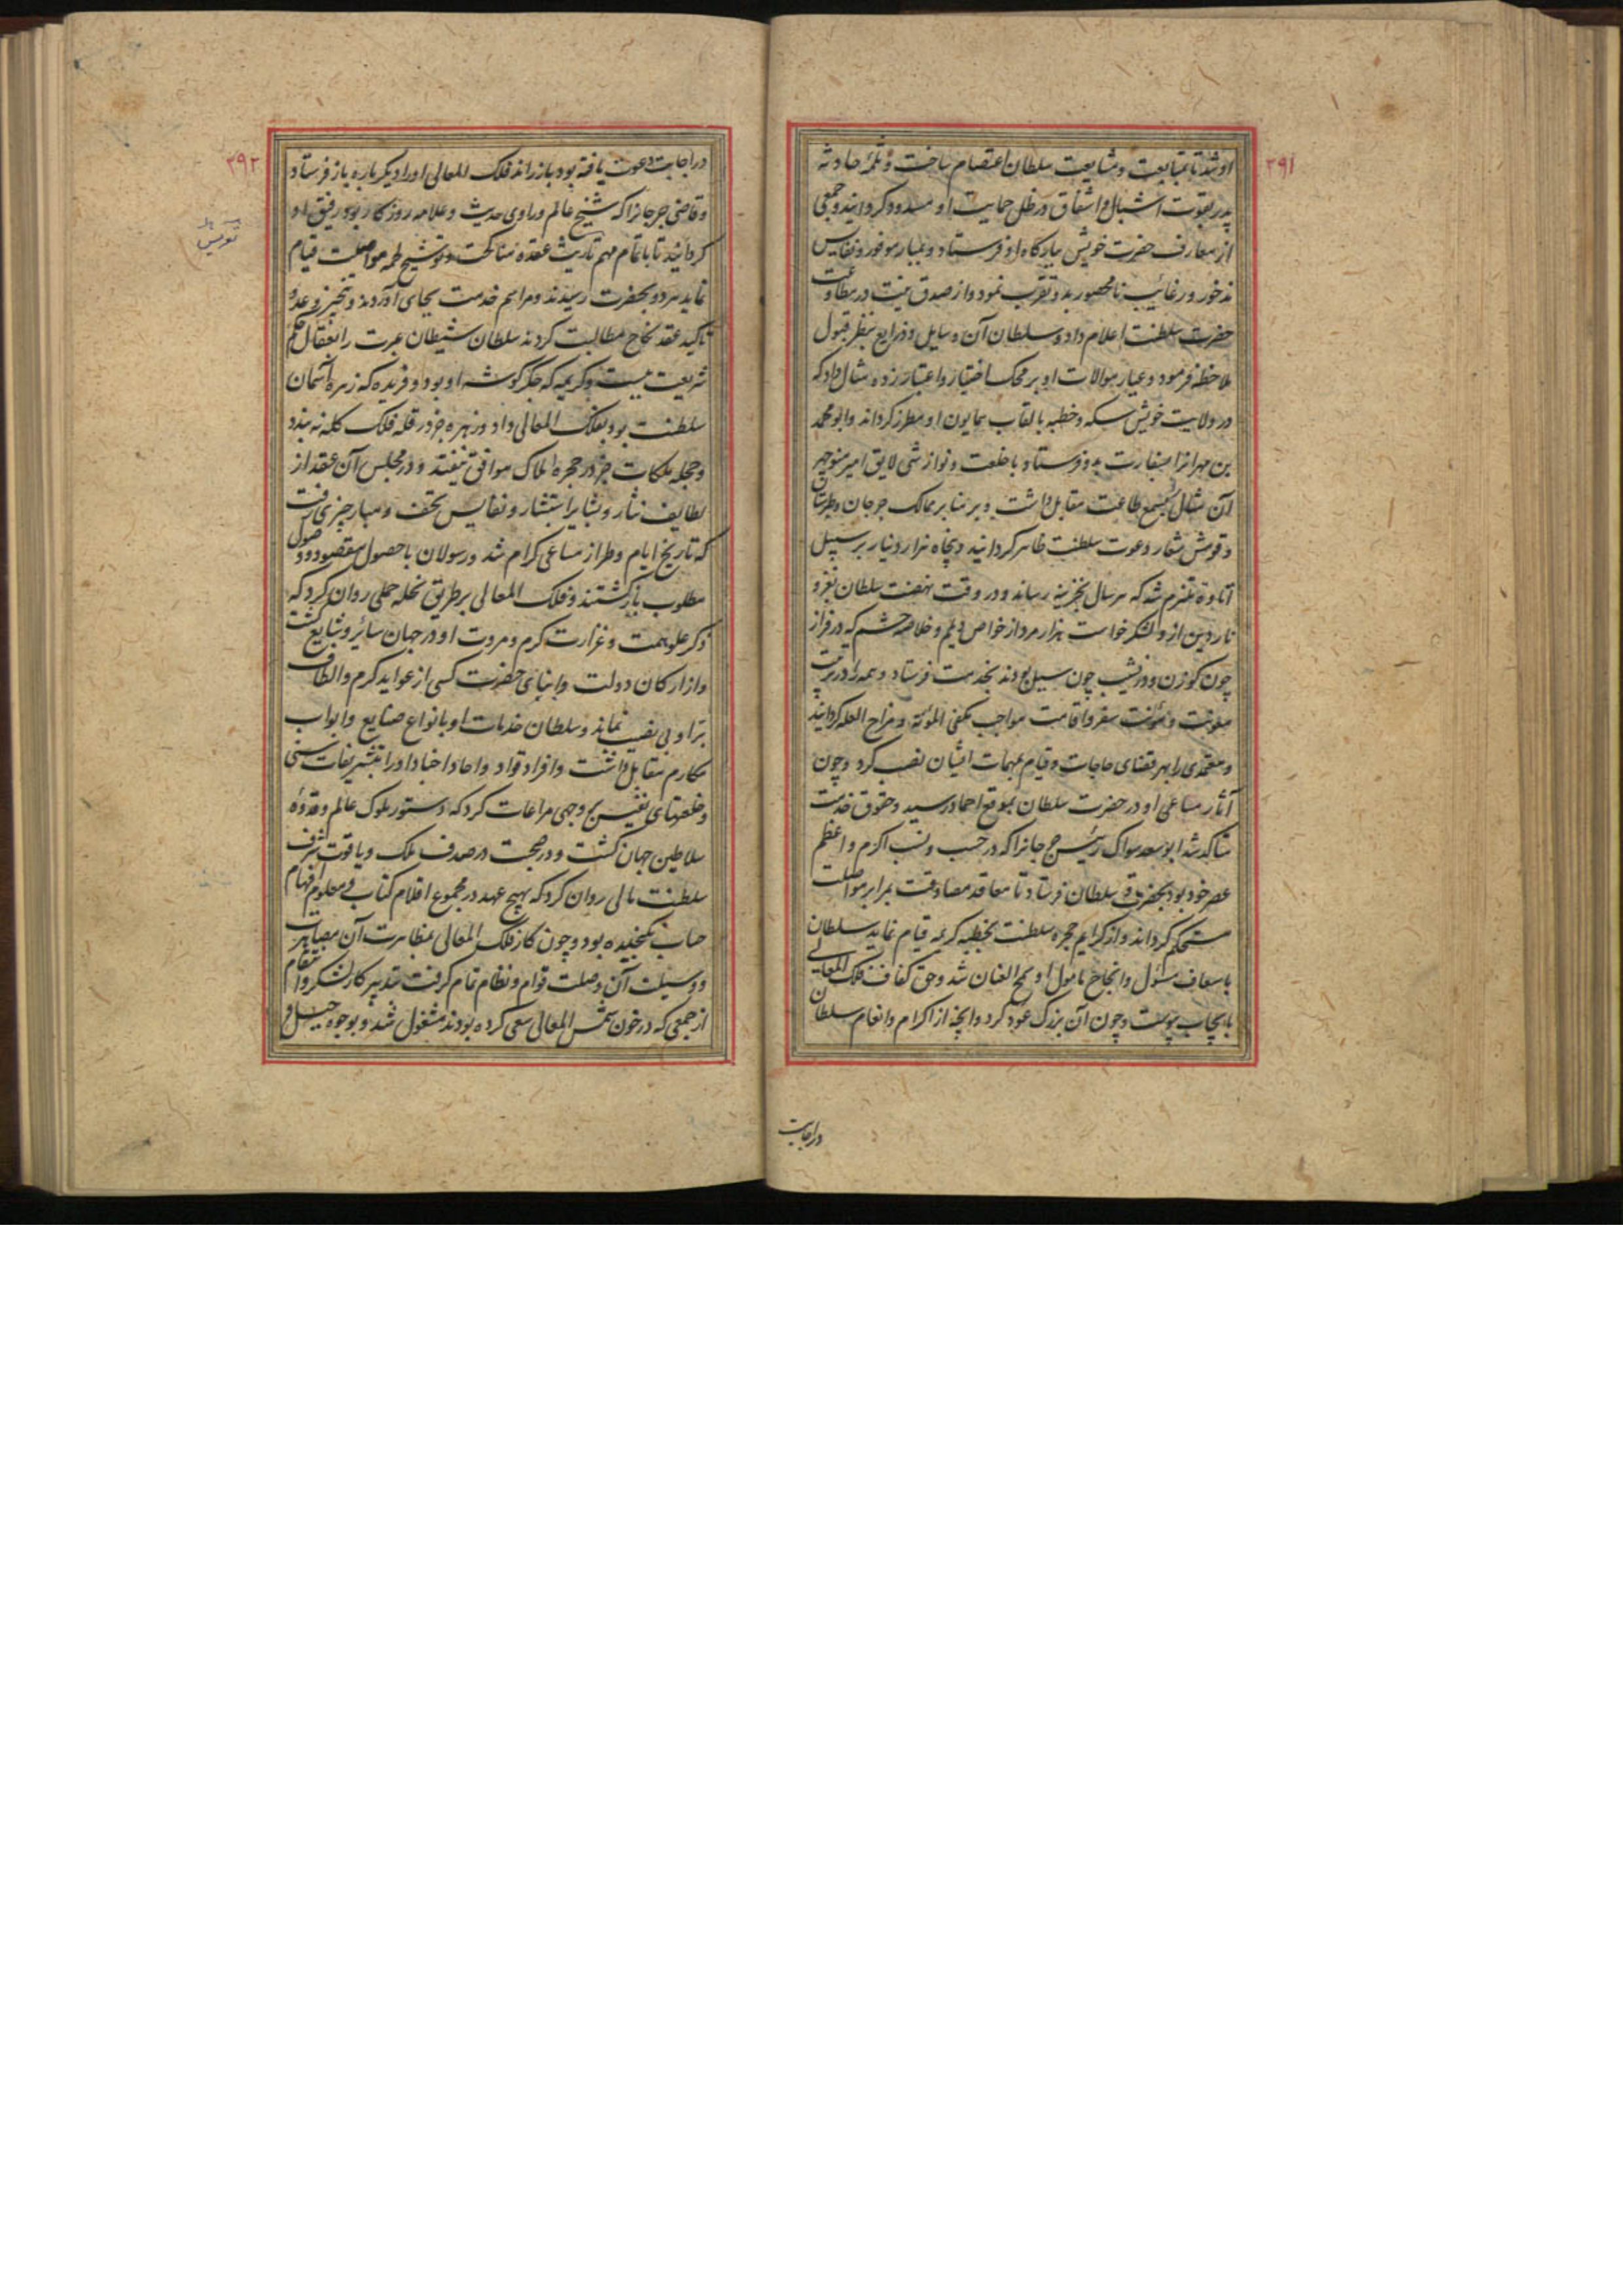 ۲۹۱
او شد تا بمتابعت و مشایعت سلطان اعتصام ساخت و ثلمهٔ حادثه
پدر بقوت اشبال و اشفاق و ظل حمایت او مسدود گردانید و جمعی
از معارف حضرت خویش ببارگاه او فرستاد و بمبار موفور و نفایس
مذخور و رغایب نامحصور بدو تقرب نمود و از صدق نیت در مطاوعت
حضرت سلطنت اعلام داد و سلطان آن وسایل و ذرایع بنظر قبول
ملاحظه فرمود و عیار موالات او بر محک اختیار و اعتبار زده مثال داد که
در ولایت خویش سکه و خطبه بالقاب همایون او مطرز گرداند و ابو محمد
بن مهرانرا بسفارت بدو فرستاد با خلعت و نوازشی لایق امیر منوچهر
آن مثال بسمع طاعت مقابل داشت و بر منابر ممالک جرجان و طبرستان
و قومش شعار دعوت سلطنت ظاهر گردانید و پنجاه هزار دینار بر سبیل
آتاوة ملتزم شد که هر سال بخزینه رساند و در وقت نهضت سلطان بغزو
ناردین از و لشکر خواست هزار مرد از خواص دیلم و خلاصه حشم که در فراز
چون گوزن و در نشیب چون سیل بودند بخدمت فرستاد و همه را در مرتب
معونت و مؤنت سفر و اقامت مواجب مکفی المؤنة و مزاح العله گردانید
و معتمدی را بهر قضای حاجات و قیام بمهمات ایشان نصب کرد و چون
آثار مساعی او در حضرت سلطان بموقع احماد رسید و حقوق خدمت
متاکد شد ابو سعد سواک رئیس جرجانرا که در حسب و نسب اکرم و اعظم
عصر خود بود بحضرت سلطان فرستاد تا معاقد مصادقت بمرابر مواصلت
مستحکم گرداند و از کرایم حجره سلطنت بخطبه کریمه قیام نماید سلطان
باسعاف مسئول و انجاح مامول او سمح العنان شد و حق کفاءت فلک المعالی
بایجاب پیوست و چون آن بزرگ عود کرد و آنچه از اکرام و انعام سلطان
در اجابت
۲۹۲
در اجابت دعوت یافته بود باز راند فلک المعالی او را دیگر باره باز فرستاد
و قاضی جرجانرا که شیخ عالم و راوی حدیث و علامه روزگار بود رفیق او
گردانید تا باتمام مهم تاریث عقده مناکحت و توشیح لحمه مواصلت قیام
نماید هر دو بحضرت رسیدند و مراسم خدمت بجای آوردند و بتنجیز وعده
تاکید عقد نکاح مطالبت کردند سلطان شیطان غیرت را بعقال حکم
شریعت ببست و کریمه که جگر گوشه او بود و فریده که زهره آسمان
سلطنت بود بفلک المعالی داد و زهره جز در قله فلک کله نه بندد
و حجله ملکات جز در حجره املاک موافق نیفتد و در مجلس آن عقد از
لطایف نثار و بشایر استبشار و نفایس تحف و مبار چیزی رفت
که تاریخ ایام و طراز مساعی کرام شد و رسولان با حصول مقصود و وصول
مطلوب بازگشتند و فلک المعالی بر طریق نحله حملی روان کرد که
ذکر علو همت و غزارت کرم و مروت او در جهان سائر و شایع گشت
و از ارکان دولت و ابنای حضرت کسی از عواید کرم و الطاف
بر او بی نصیب نماند و سلطان خدمات او بانواع صنایع و ابواب
مکارم مقابل داشت و افراد قواد و احاد اجناد او را بتشریفات سنی
و خلعتهای نفیس بر وجهی مراعات کرد که دستور ملوک عالم و قدوهٔ
سلاطین جهان گشت و در صحبت در صدف ملک و یاقوت شرف
سلطنت مالی روان کرد که بهیچ عهد در مجموع اقلام کتاب و معلوم افهام
حساب نگنجیده بود و چون کار فلک المعالی بمظاهرت آن مصاهرت
و وسیلت آن وصلت قوام و نظام تمام گرفت بتدبیر کار لشکر و انتقام
از جمعی که در خون شمس المعالی سعی کرده بودند مشغول شد و بوجوه حیل و